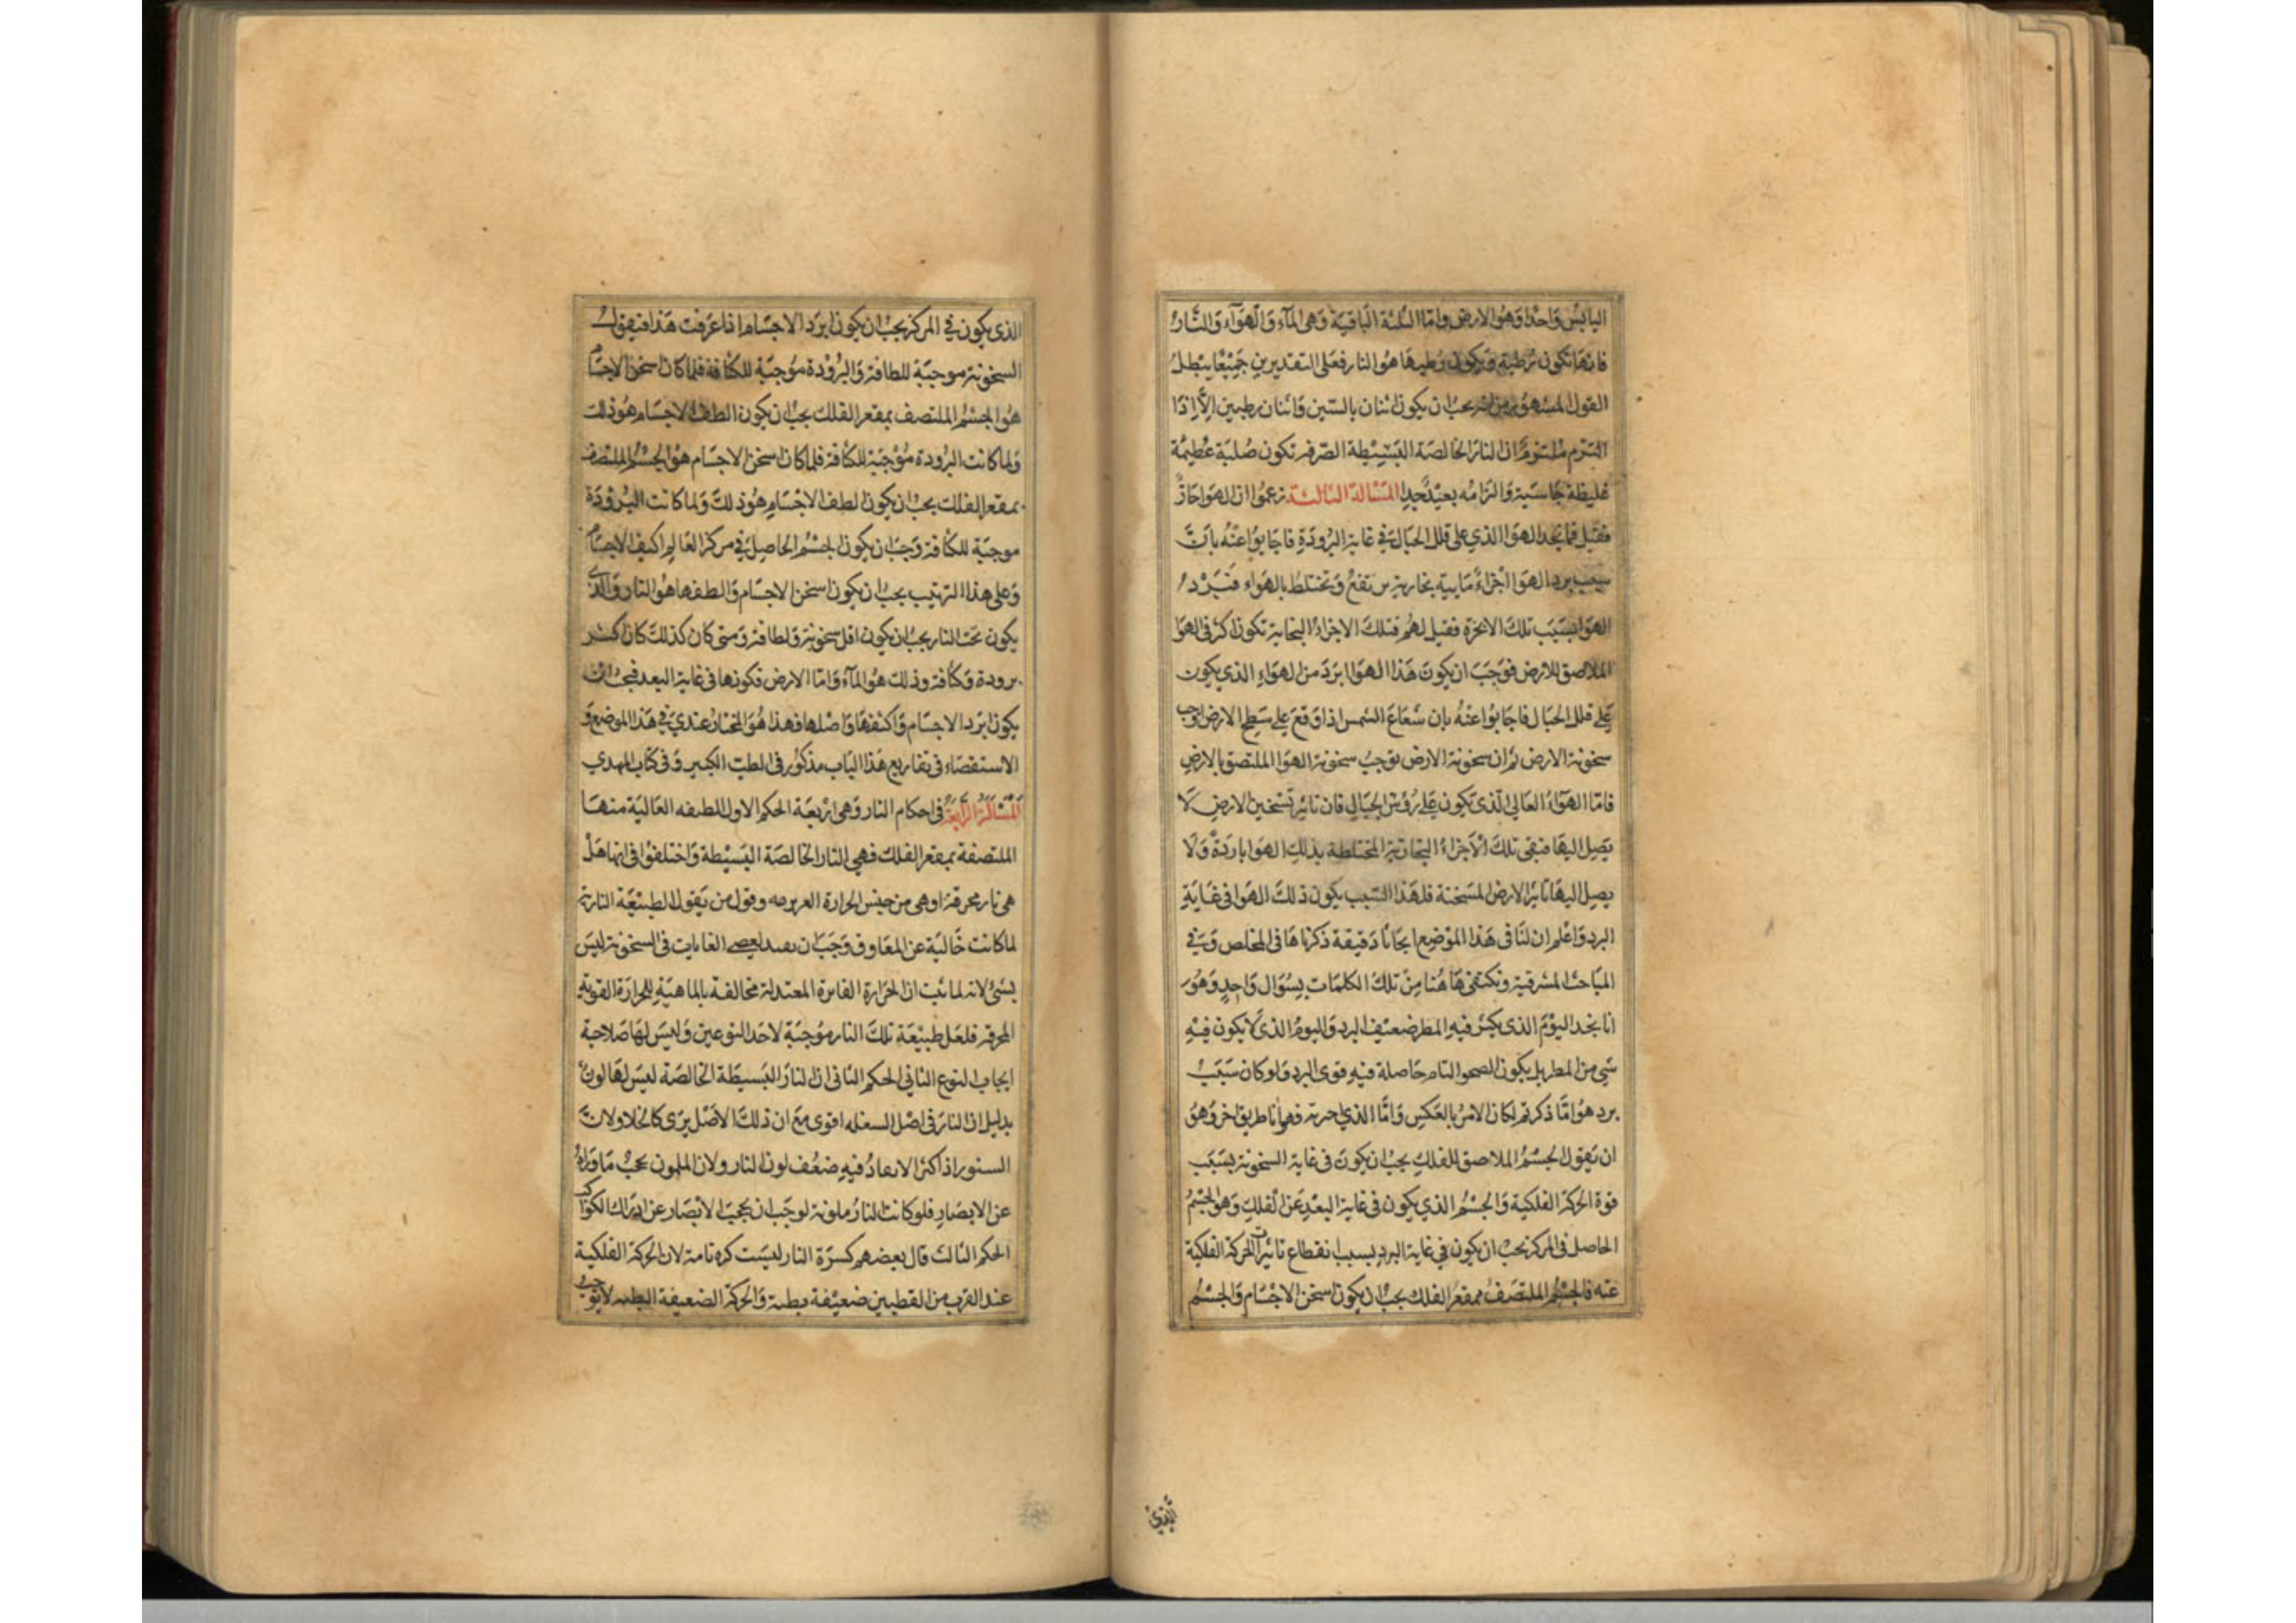 اليابس واحدا وهو الارض واما الثلثة الباقية وهى الماء والهواء والنار
فانها تكون رطبة ويكون رطبها هو النار فعلى التقديرين جميعا يبطل
القول المشهور من انه يجب ان يكون اثنان يابسين واثنان رطبين الا اذا
التزم ملتزم ان النار الخالصة البسيطة الصرفة تكون صلبة عظيمة
غليظة جاسية والتزامه بعيد جدا المسالة الثالثة زعموا ان الهوا حار
فقيل فما نجد الهوا الذي على قلل الجبال في غاية البرودة فاجابوا عنه بان
سبب برد الهوا اجزاء مايية بخارية ترتفع وتختلط بالهواء فتبرد
الهوا بسبب تلك الابخرة فقيل لهم فتلك الاجزاء البخارية تكون اكثر فى الهوا
الملاصق للارض فوجب ان يكون هذا الهوا ابرد من الهواء الذي يكون
على قلل الجبال فاجابوا عنه بان شعاع الشمس اذا وقع على سطح الارض اوجب
سخونة الارض ثم ان سخونة الارض توجب سخونة الهوا الملتصق بالارض
فاما الهواء العالي الذي تكون على رؤس الجبال فان تاثير تسخين الارض لا
يصل اليها فتبقى تلك الاجزاء البخارية المختلطة بذلك الهوا باردة ولا
يصل اليها تاثير الارض المسخنة فلهذا السبب يكون ذلك الهوا فى غاية
البرد واعلم ان لنا فى هذا الموضع ابحاثا دقيقة ذكرناها فى الملخص وفي
المباحث المشرقية ونكتفى هاهنا من تلك الكلمات بسؤال واحد وهو
انا نجد اليوم الذي يكثر فيه المطر ضعيف البرد واليوم الذي لا يكون فيه
شي من المطر بل يكون الصحو التام حاصلة فيه قوى البرد ولو كان سبب
برد هوا ما ذكرتم لكان الامر بالعكس واما الذي فهاهنا طريق اخر وهو
ان نقول الجسم الملاصق للفلك يجب ان يكون فى غاية السخونة بسبب
قوة الحركة الفلكية والجسم الذي يكون فى غاية البعد عن الفلك وهو الجسم
الحاصل فى المركز يجب ان يكون في غاية البرد بسبب انقطاع تاثيرات الحركة الفلكية
عنه فالجسم الملتصق بمقعر الفلك يجب ان يكون اسخن الاجسام والجسم
الذي
الذي يكون في المركز يجب ان يكون ابرد الاجسام اذا عرفت هذا فنقول
السخونة موجبة للطافة والبرودة موجبة للكثافة فلما كان اسخن الاجسام
هو الجسم الملتصق بمقعر الفلك يجب ان يكون الطف الاجسام هو ذلك
ولما كانت البرودة موجبة للكثافة فلما كان اسخن الاجسام هو الجسم الملتصق
بمقعر الفلك يجب ان يكون الطف الاجسام هو ذلك ولما كانت البرودة
موجبة للكثافة وجب ان يكون الجسم الحاصل في مركز العالم اكثف الاجسام
وعلى هذا الترتيب يجب ان يكون اسخن الاجسام والطفها هو النار والذي
يكون تحت النار يجب ان يكون اقل سخونة ولطافة ومتى كان كذلك كان اكثر
برودة وكثافة وذلك هو الماء واما الارض فكونها فى غاية البعد فيجب ان
يكون ابرد الاجسام واكثفها واصلها فهذا هو المختار عندي في هذا الموضع و
الاستقصاء فى تفاريع هذا الباب مذكور فى الطب الكبير وفى كتاب المهدي
المسالة الرابعة فى احكام النار وهى اربعة الحكم الاول للطبقه العالية منها
الملتصقة بمقعر الفلك فهي النار الخالصة البسيطة واختلفوا فى انها هل
هى نار محرقة او هى من جنس الحرارة الغريزيه وقول من يقول الطبيعة النارية
لما كانت خالية عن المعاوق وجب ان الغايات فى السخونة ليس
بشئ لانه لما ثبت ان الحرارة الفاترة المعتدلة مخالفة بالماهية للحرارة القوية
المحرقة فلعل طبيعة تلك النار موجبة لاحد النوعين وليس لها صلاحية
ايجاب النوع الثاني الحكم الثانى ان النار البسيطة الخالصة ليس لها لون
بدليل ان النار فى اصل الشعله اقوى مع ان ذلك الاصل يرى كالخلا ولان
السنور اذا اكثر الايقاد فيه ضعف لون النار ولان الملون يحجب ما وراه
عن الابصار فلو كانت النار ملونة لوجب ان يحجب الابصار عن ادراك الكواكب
الحكم الثالث قال بعضهم كسرة النار ليست كره تامة لان الحركة الفلكية
عند القرب من القطبين ضعيفة بطية والحركة الضعيفة البطيه لا توجب